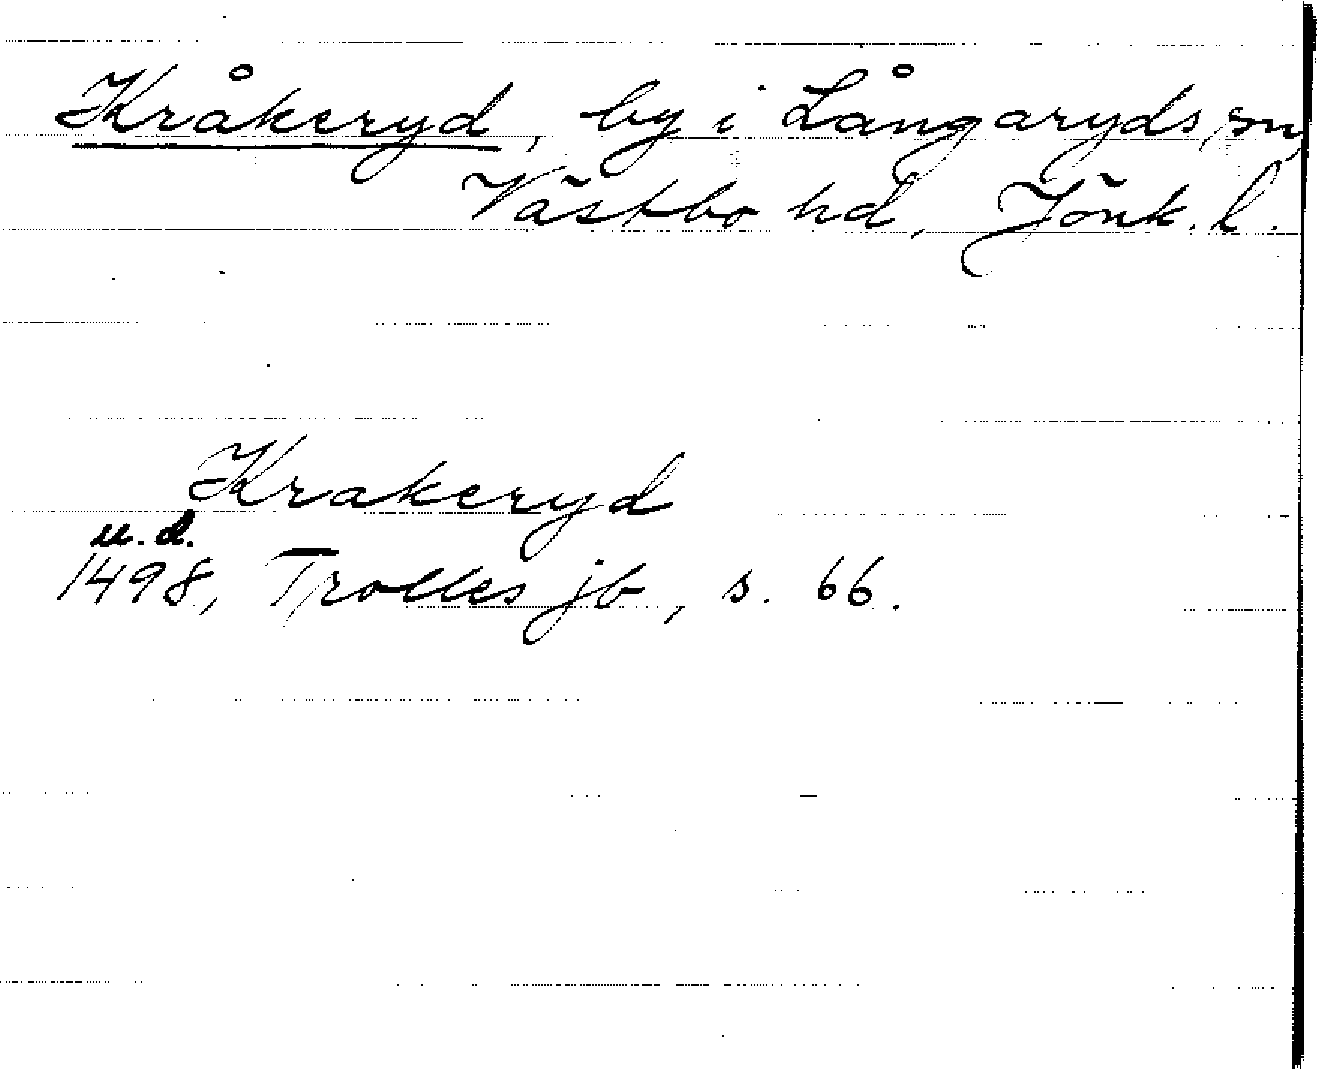 Kråkeryd, by i Långaryds sn,
Västbo hd, Jönk. l.
Krakeryd
u.d.
1498, Trolles jb, s. 66.